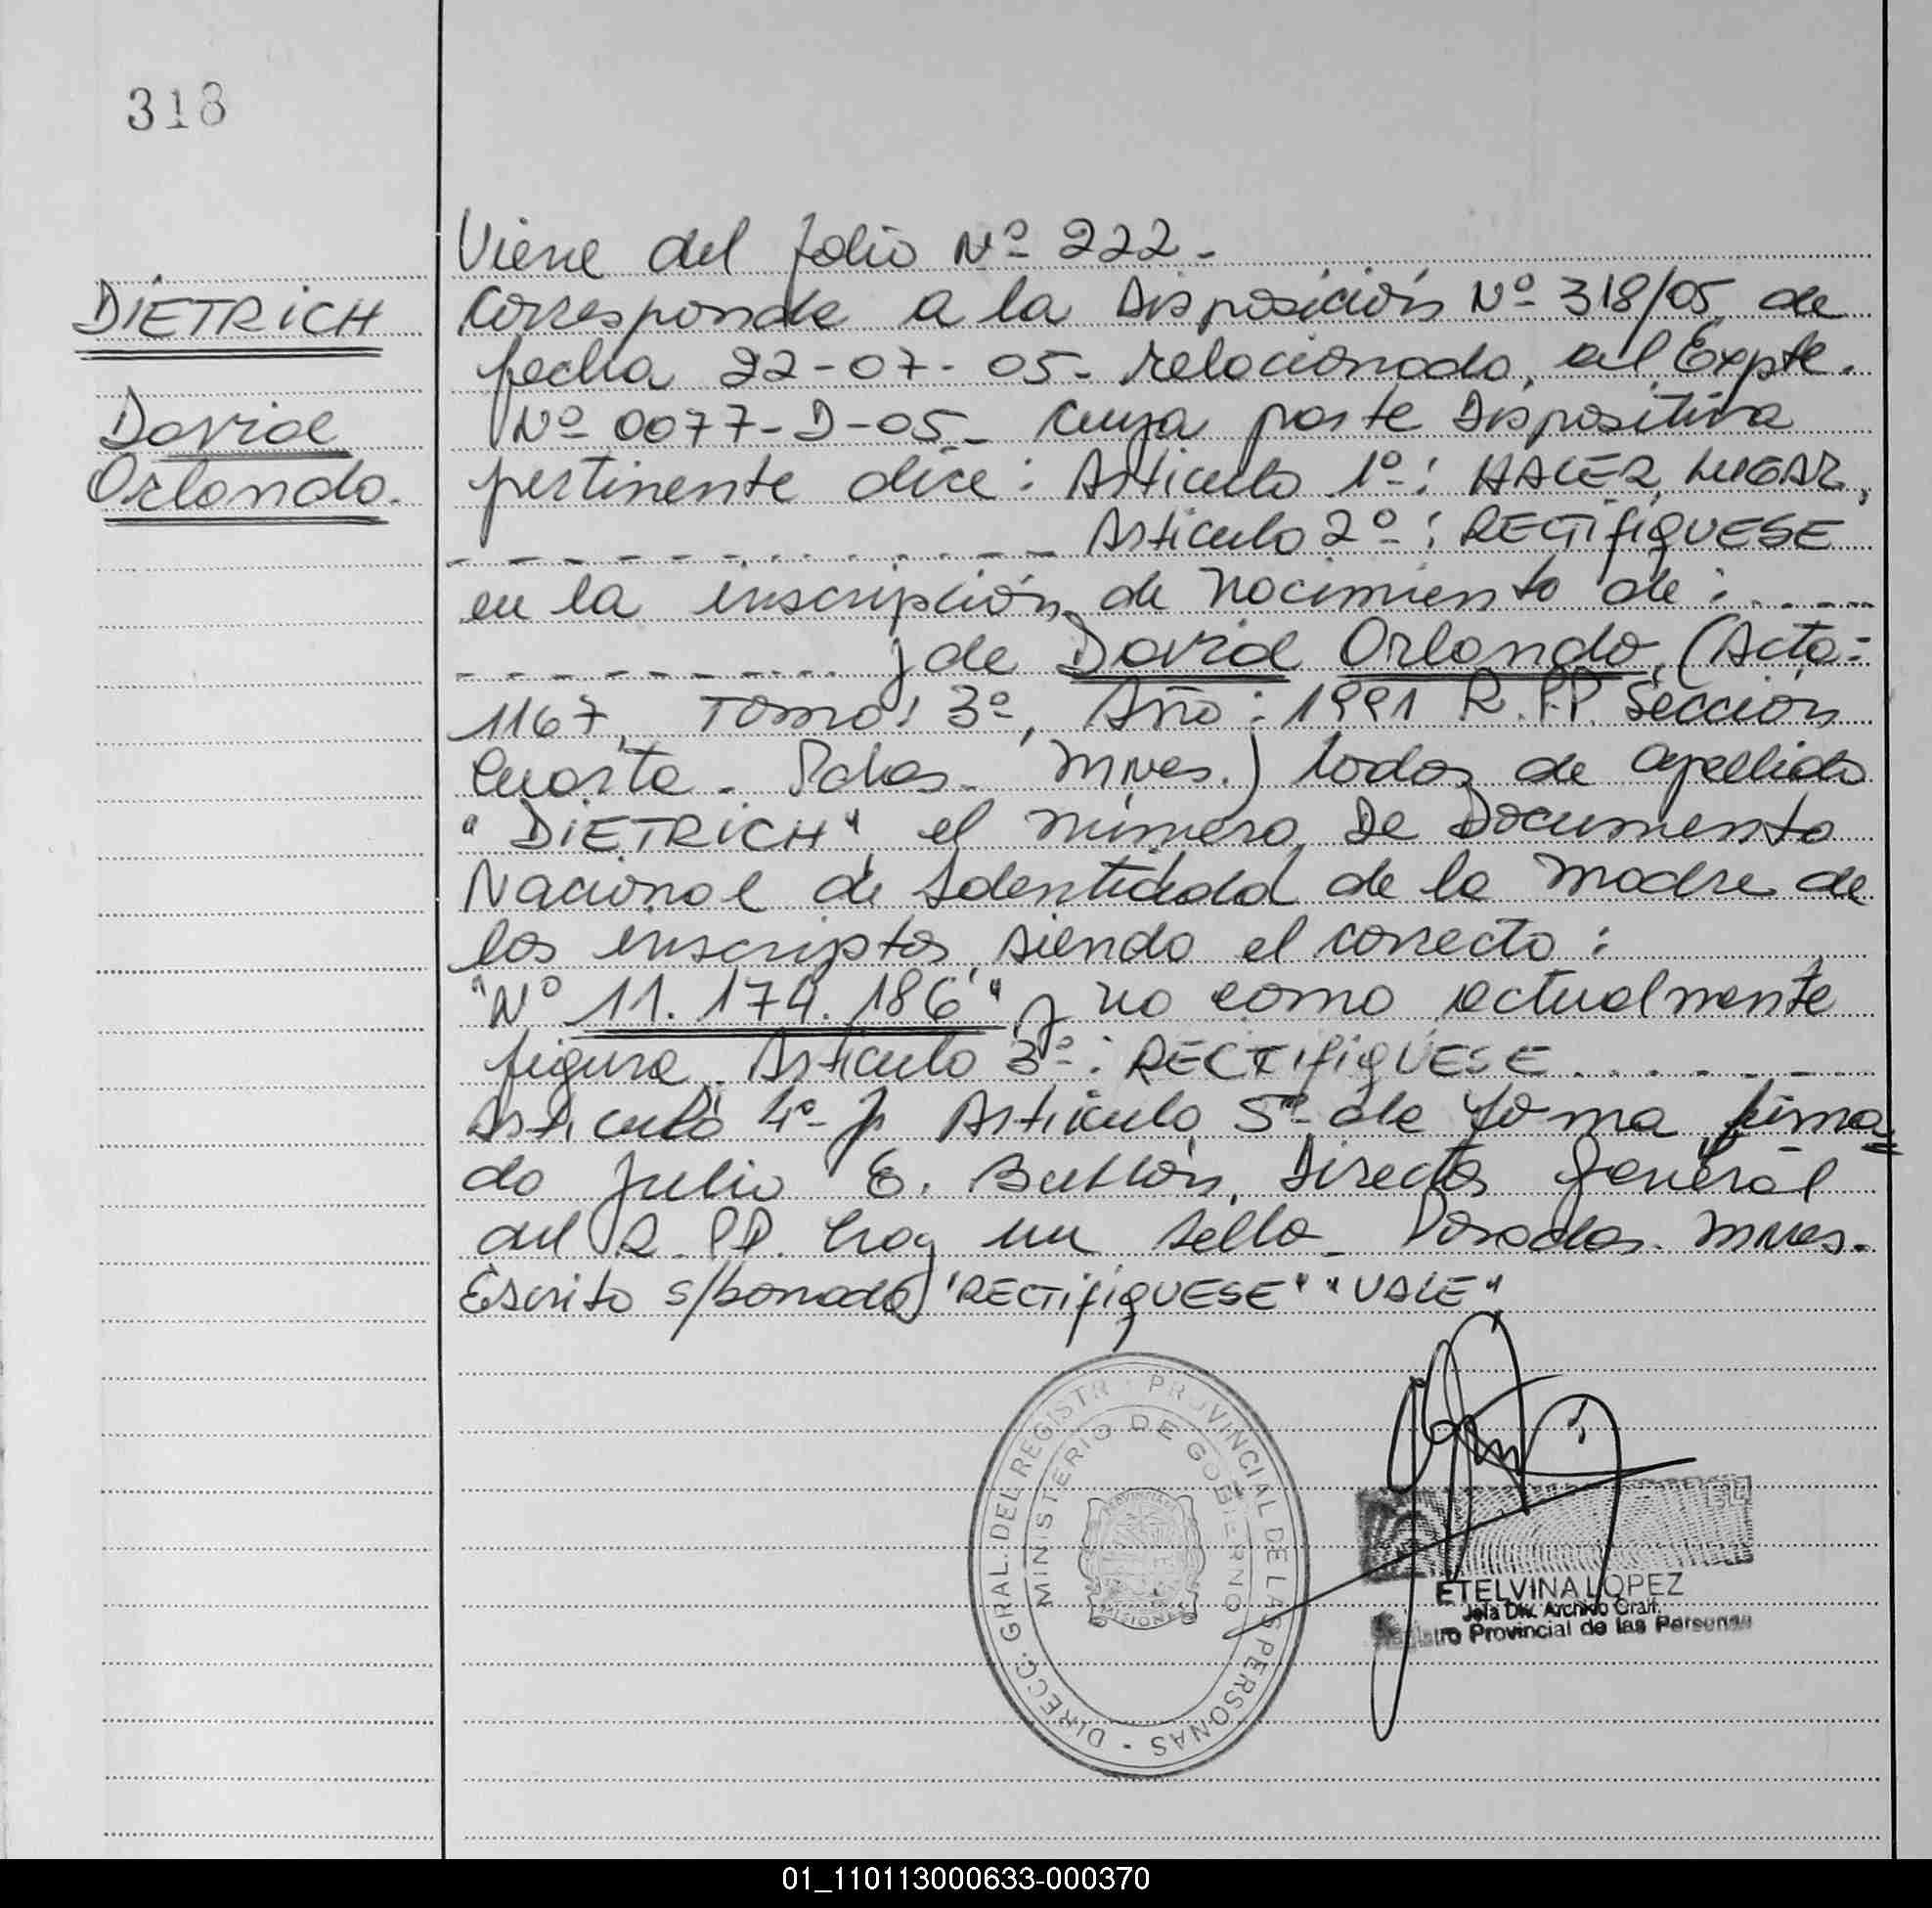 318
DIETRICH
David
Orlando.
Viene del folio Nº 222-
Corresponde a la Disposición Nº 318/05 de
fecha 22-07-05- relacionado, al Expte.
Nº 0077-D-05- cuya parte Dispositiva
pertinente dice: Artículo 1º: HACER LUGAR,
Artículo 2º: RECTIFIQUESE
en la inscripción de nacimiento de:
y de David Orlando, (Acta:
1167, Tomo: 3º, Año: 1991 R.P.P. Sección
Cuarta- Pdas- Mnes.) todos de apellido
"DIETRICH" el número De Documento
Nacional de Identidad de la madre de
los inscriptos, siendo el correcto:
"Nº 11.174.186" y no como actualmente
figura. Artículo 3º: RECTIFIQUESE
Artículo 4º y Artículo 5º de forma, firma=
do Julio E. Director General
del R.P.P. hay un sello- Posadas- Mnes-
Escrito s/borrado "RECTIFIQUESE" "VALE"
DIRECC. GRAL. DEL REGISTRO PROVINCIAL DE LAS PERSONAS -
MINISTERIO DE GOBIERNO
PROVINCIA DE
MISIONES
ETELVINA LOPEZ
Jefa Div. Archivo Gral.
Registro Provincial de las Personas
01_110113000633-000370